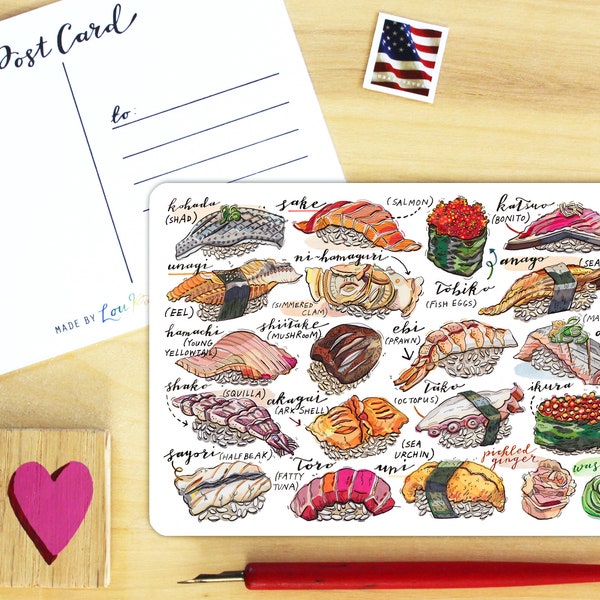 Post Card
to:
MADE BY
kohada
(SHAD)
sake
(SALMON)
katsuo
(BONITO)
unagi
(EEL)
ni-hamaguri
(SIMMERED
CLAM)
tobiko
(FISH EGGS)
anago
(SEA
hamachi
(YOUNG
YELLOWTAIL)
shiitake
(MUSHROOM)
ebi
(PRAWN)
shako
(SQUILLA)
akagai
(ARK SHELL)
tako
(OCTOPUS)
ikura
sayori
(HALFBEAK)
toro
(FATTY
TUNA)
uni
(SEA
URCHIN)
pickled
ginger